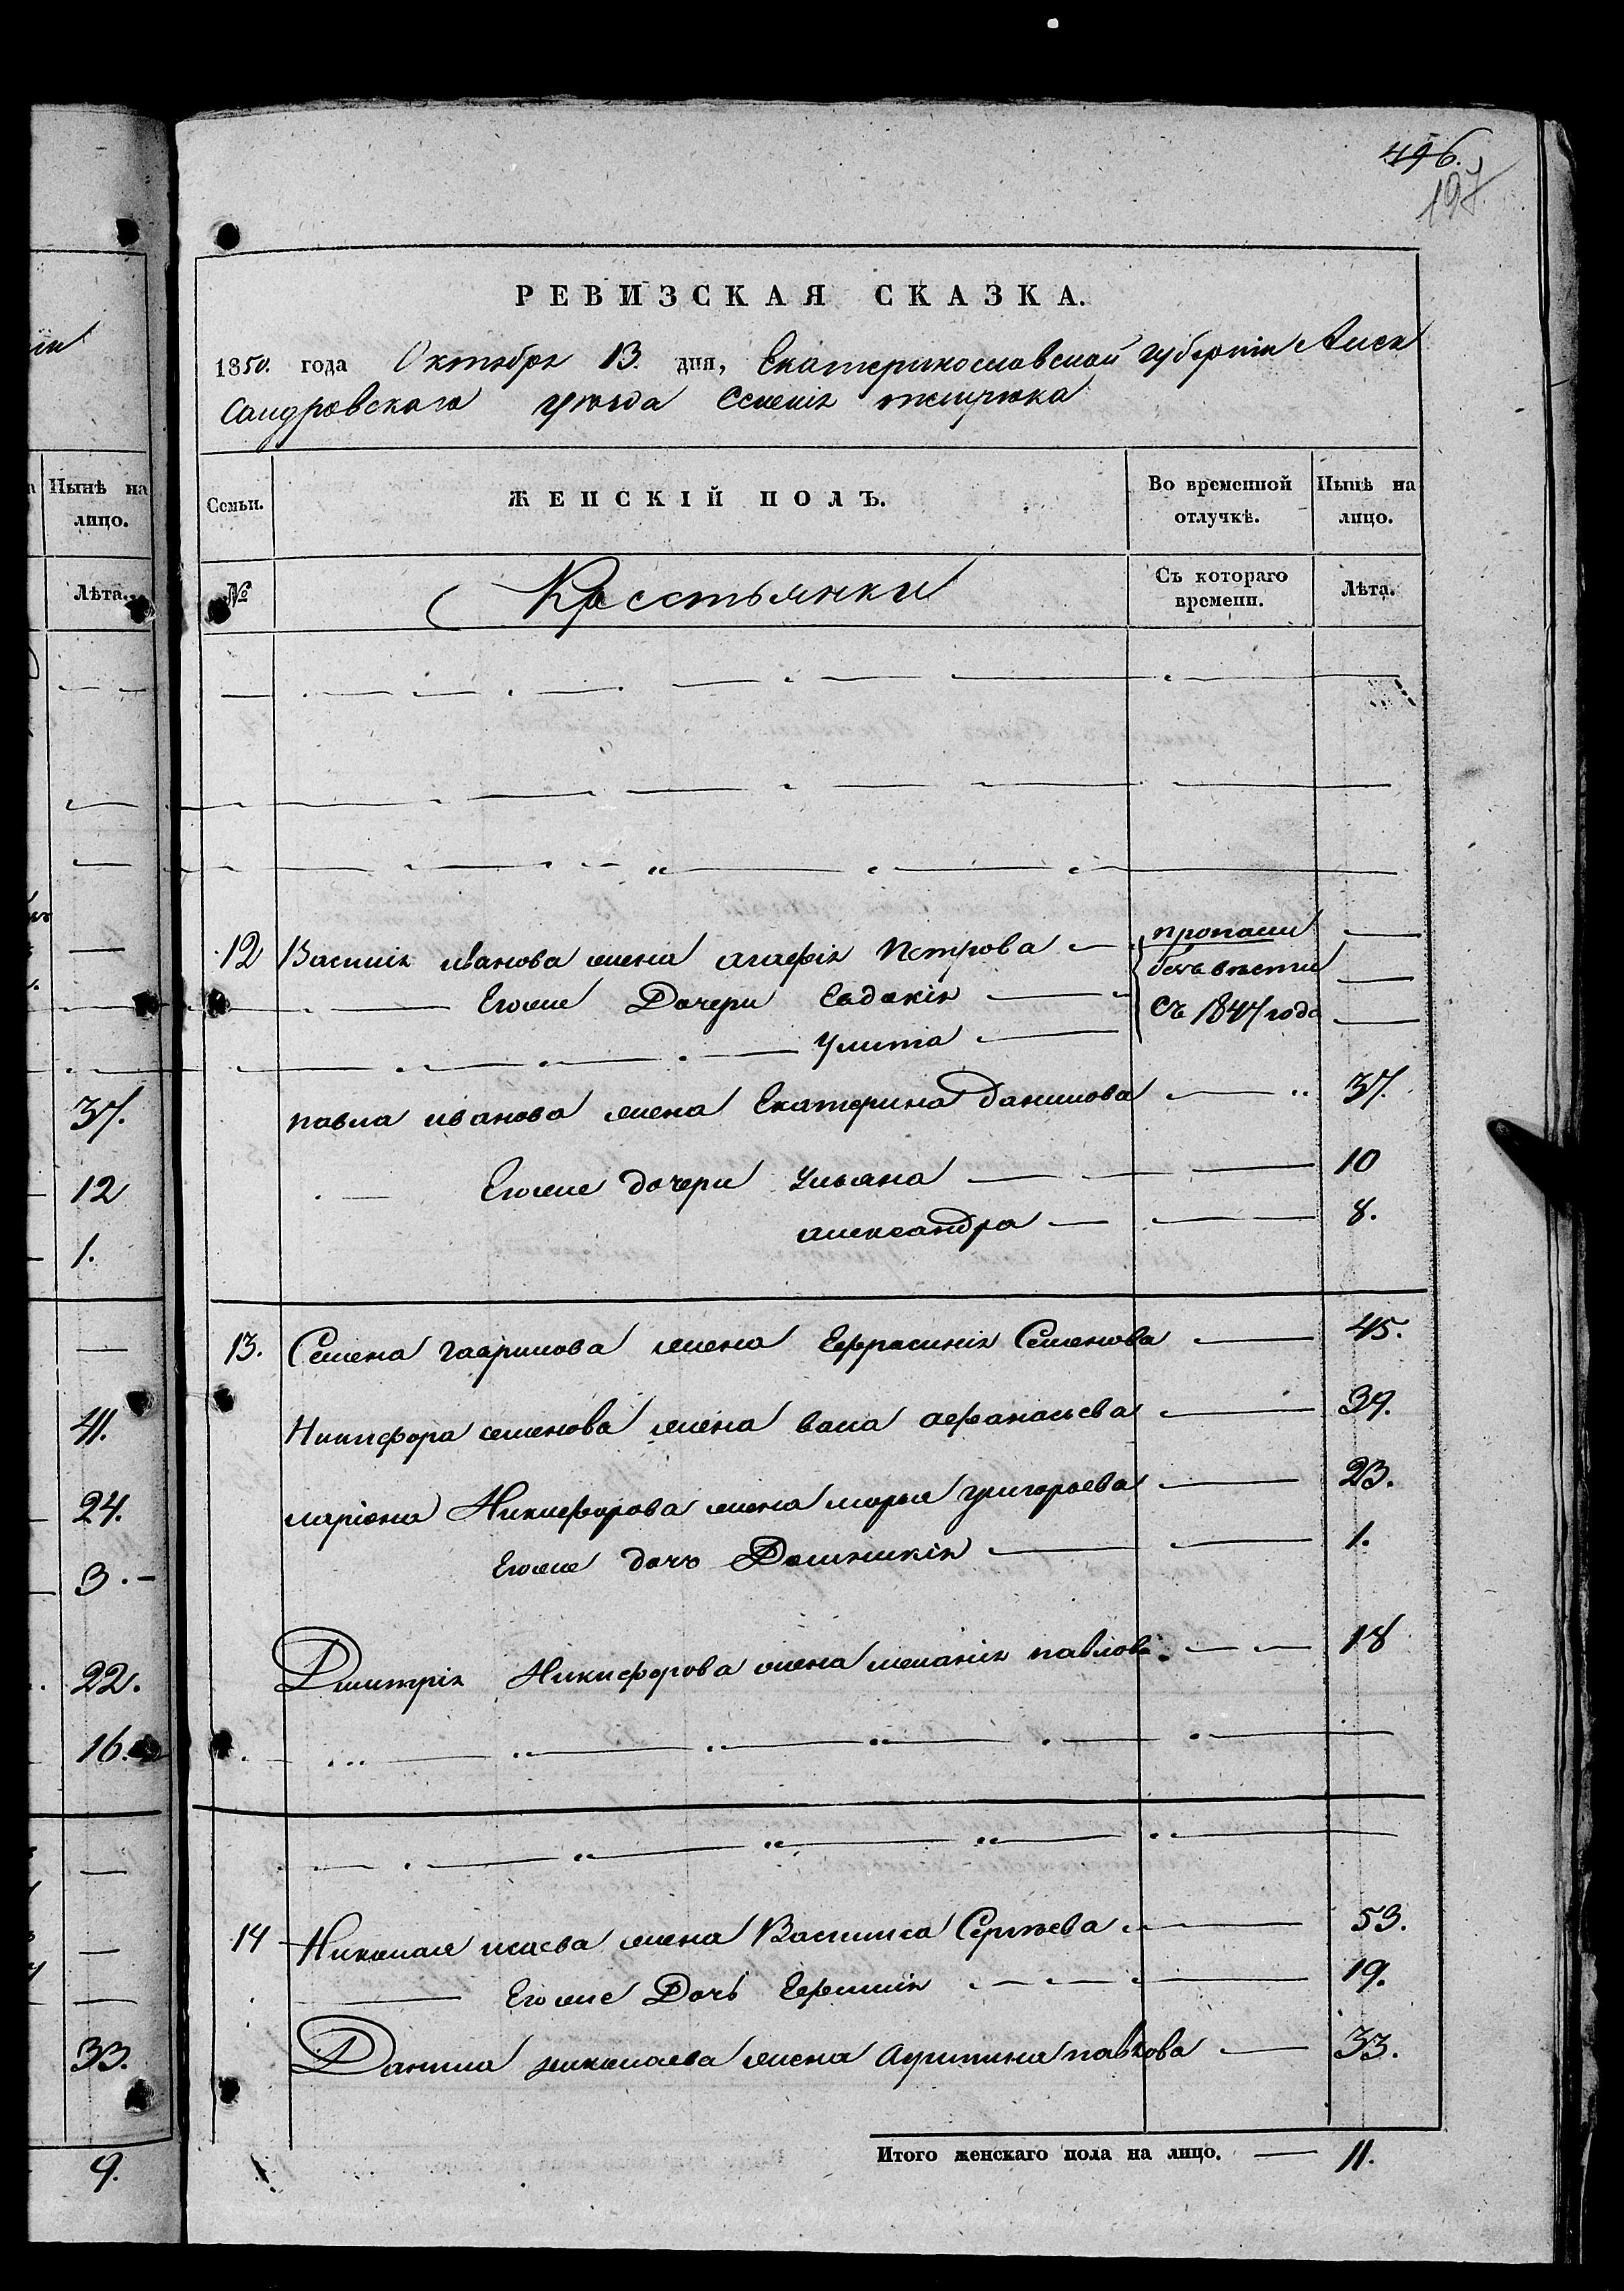 496.
197
РЕВИЗСКАЯ СКАЗКА.
1850. года Октября 13. дня, Екатеринославской губернiи Алек
сандровскаго уезда Селенiя
Семьи.
ЖЕНСКIЙ ПОЛЪ.
Во временной отлучкѣ.
Нынѣ на лицо.
№
Крестьянки
Съ котораго времени.
Лѣта.
12 Василiя иванова жена агафiя Петрова пропали —
Егоже Дочери Евдокiя безъ вѣсти —
Улита съ 1847 года —
павла иванова жена Екатерина данилова 37.
Егоже дочери Ульяна 10
александра 8.
13. Семена гаврилова жена Ефросинiя Семенова 45.
Никифора семенова жена васа афанасьева 39.
ларiона Никифорова жена марья григорьева 23.
Егоже дочь Домникiя 1.
Дмитрiя Никифорова жена меланiя павлова 18
14 Николая исаева жена Василиса Сергѣева 53.
Егоже Дочь Ефимiя 19.
Данила николаева жена Агрипина павлова 33.
Итого женскаго пола на лицо. — 11.
Нынѣ на лицо.
Лѣта.
37.
12
1.
41.
24.
3.
22.
16.
33.
9.